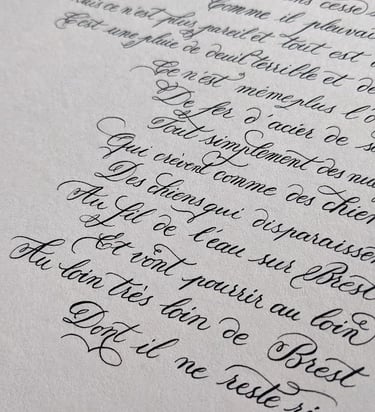 sans cesse
Comme il pleuvai
Mais ce n'est plus pareil et tout est
C'est une pluie de deuil terrible et de
Ce n'est même plus l'o
De fer d'acier de s
Tout simplement des nua
Qui crèvent comme des chien
Des chiens qui disparaissen
Au fil de l'eau sur Brest
Et vont pourrir au loin
Au loin très loin de Brest
Dont il ne reste ri